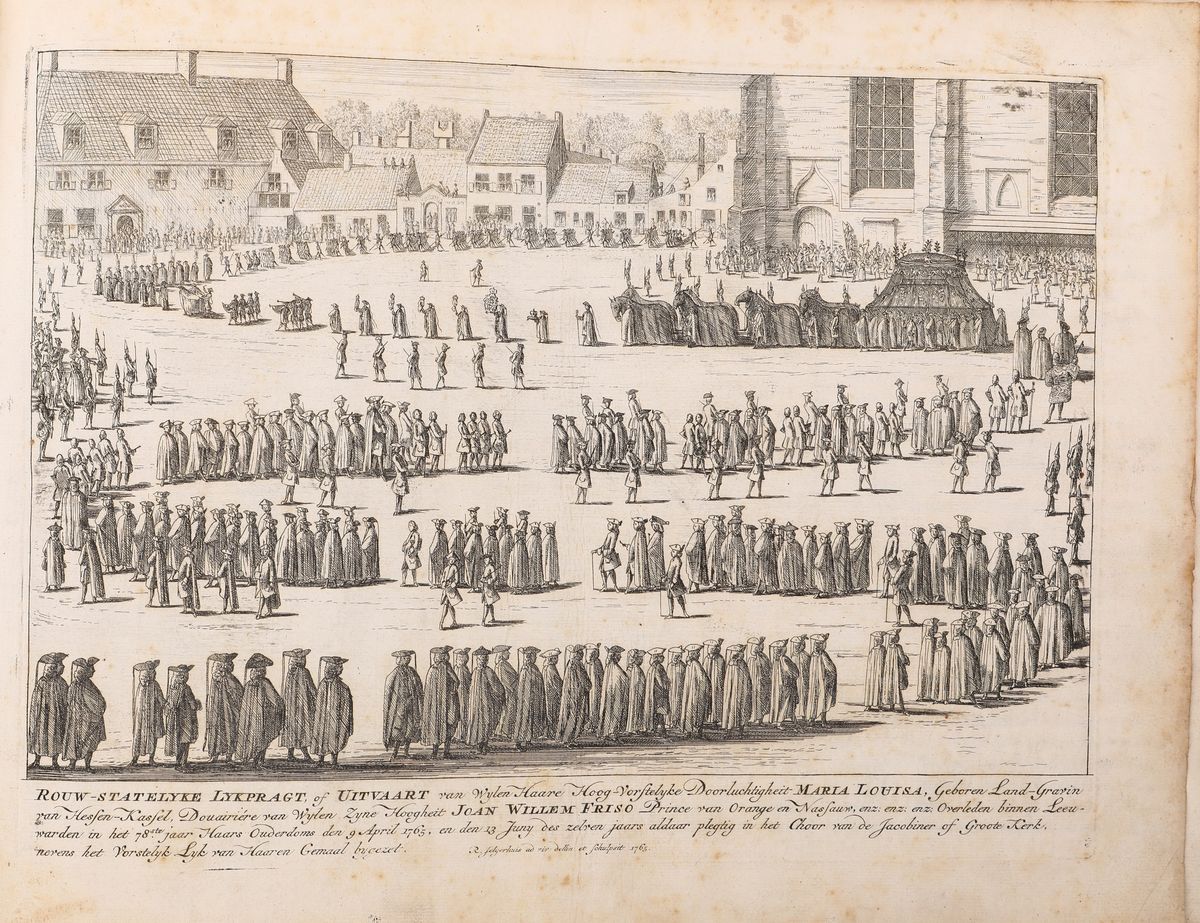 ROUW-STATELYKE LYKPRAGT, of UITVAART van Wylen Haare Hoog-Vorstelyke Doorluchtigheit MARIA LOUISA, Geboren Land-Gravin
van Hessen-Kassel, Douairiére van Wylen Zyne Hoogheit JOAN WILLEM FRISO Prince van Orange en Nassauw, enz: enz: enz: Overleden binnen Leeu-
warden in het 78ste jaar Haars Ouderdoms den 9 April 1765, en den 13 Juny des zelven jaars aldaar plegtig in het Choor van de Jacobiner of Groote Kerk,
nevens het Vorstelyk Lyk van Haaren Gemaal bygezet.
R. Jelgerhuis ad viv. delin et sculpsit 1765.